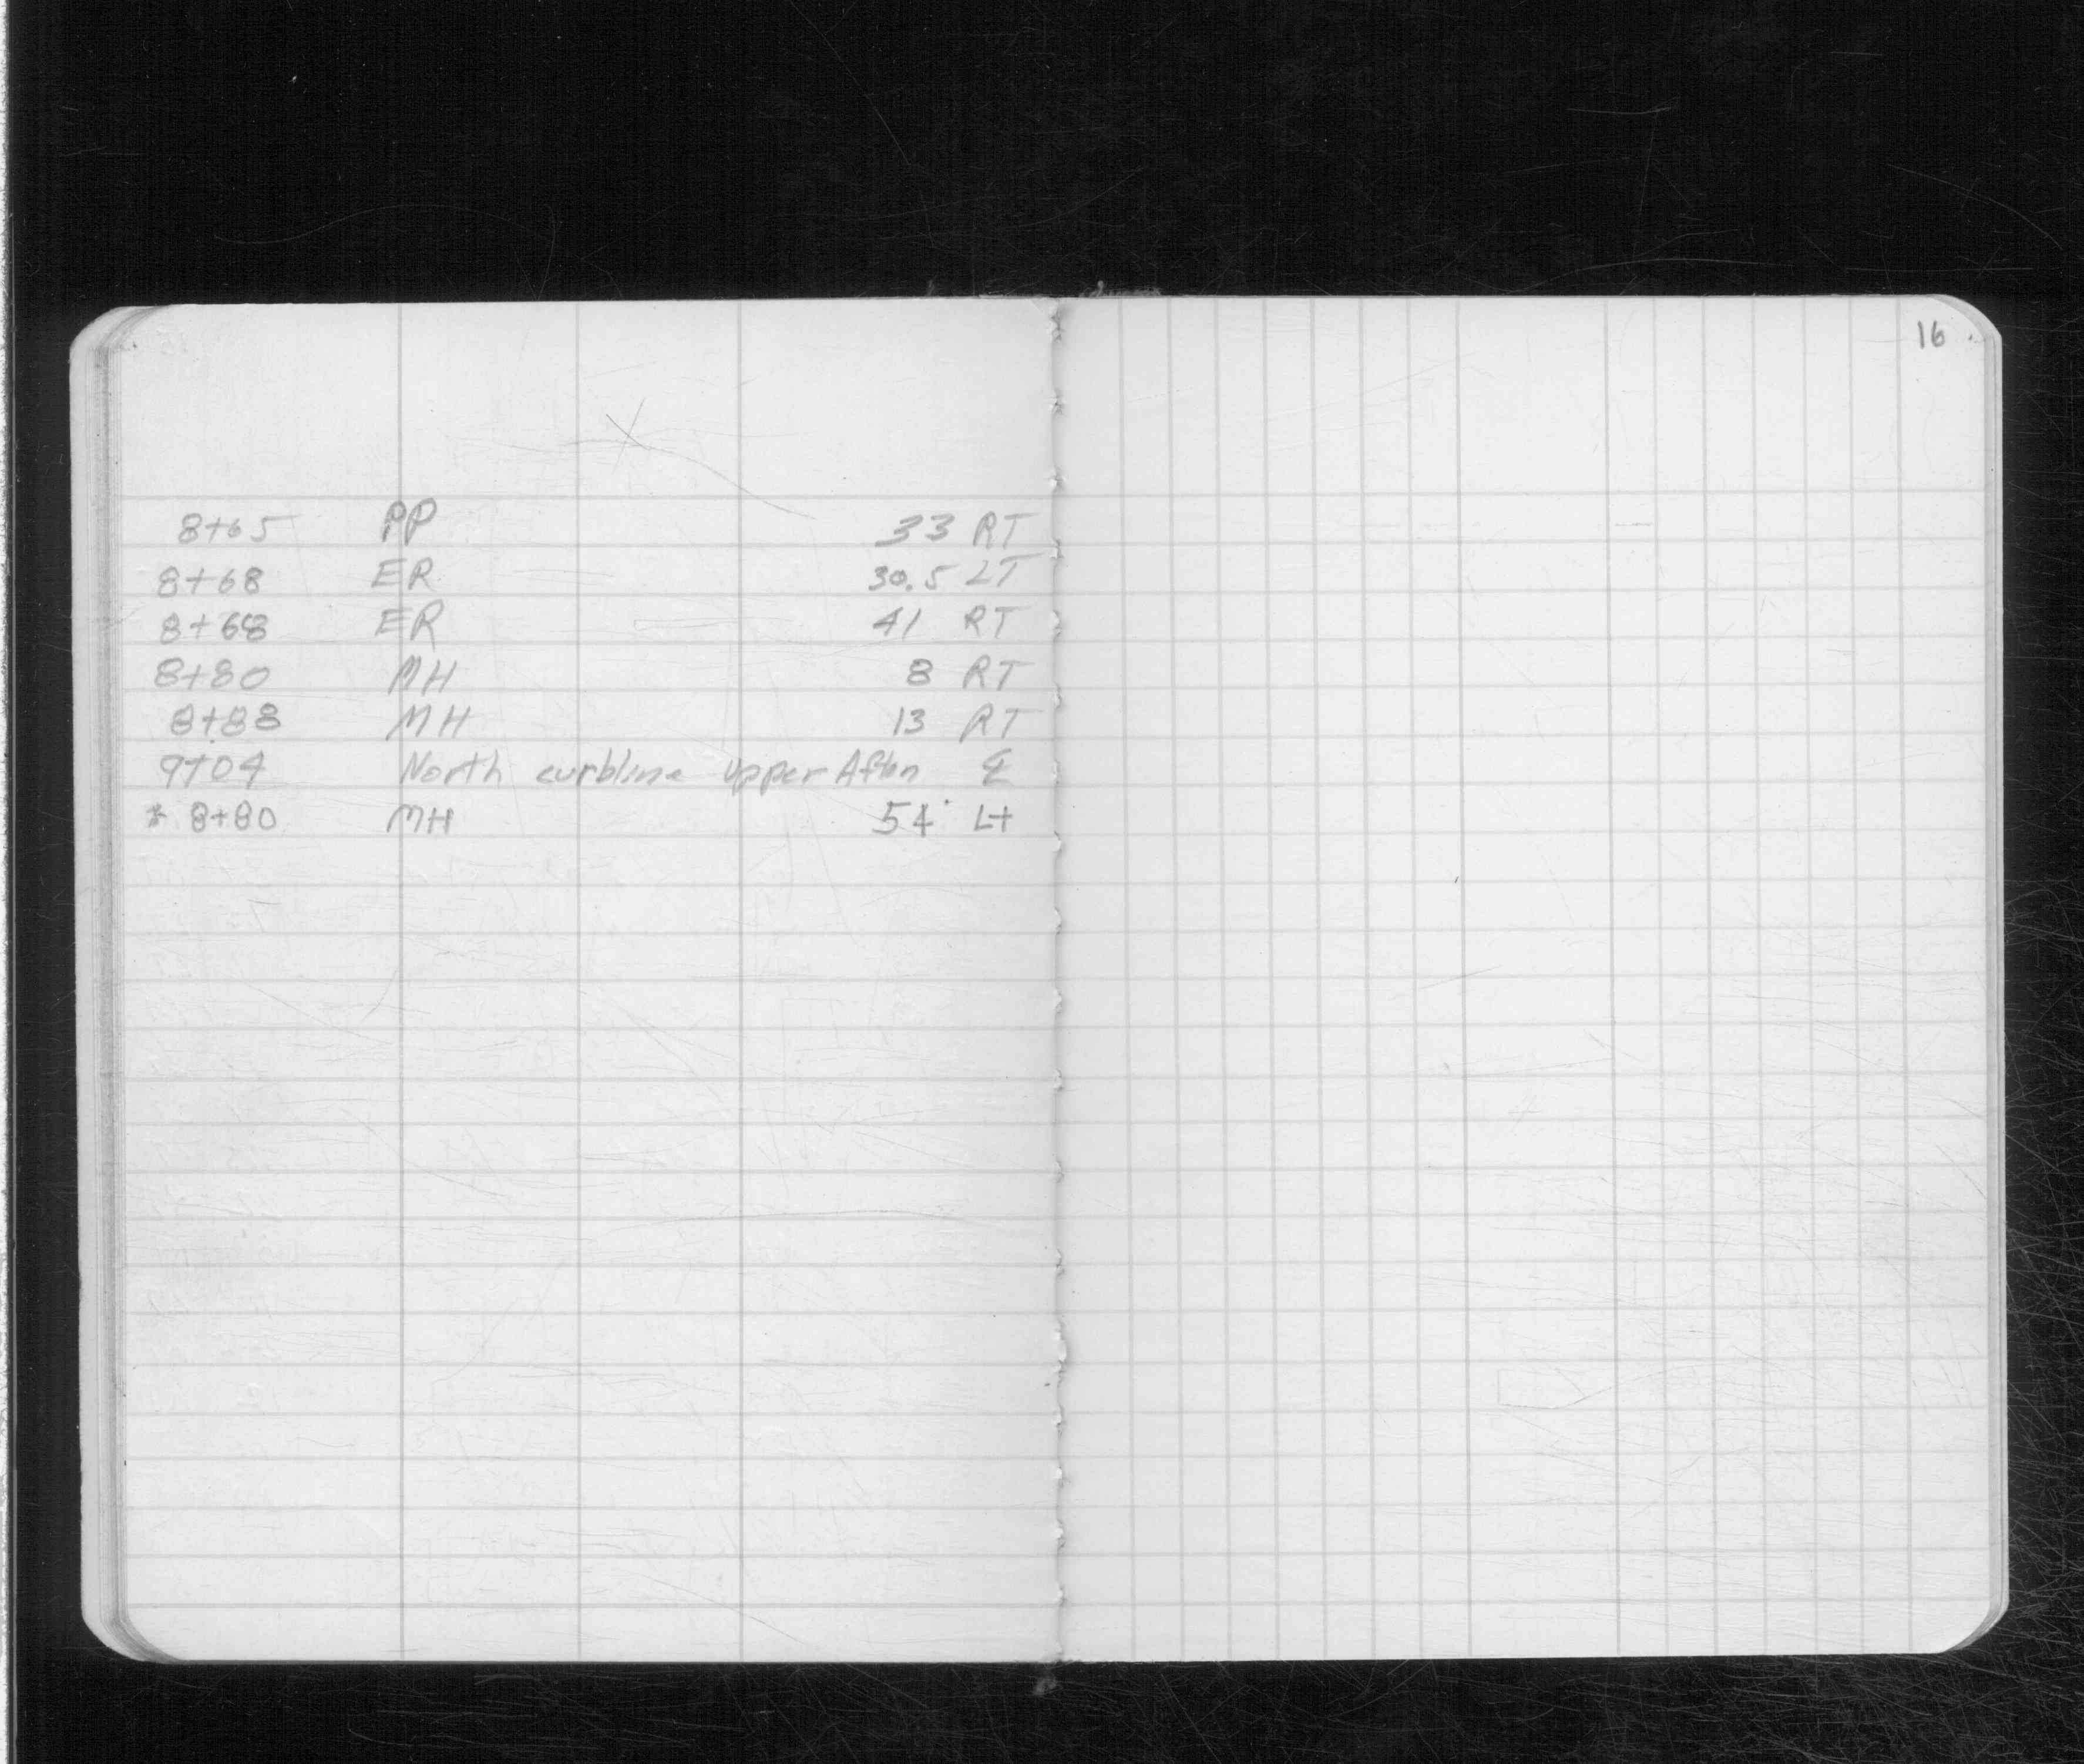 16
8+65 PP 33 RT
8+68 ER 30.5 LT
8+68 ER 41 RT
8+80 MH 8 RT
8+88 MH 13 RT
9+04 North curbline Upper Afton ℄
* 8+80 MH 54' Lt